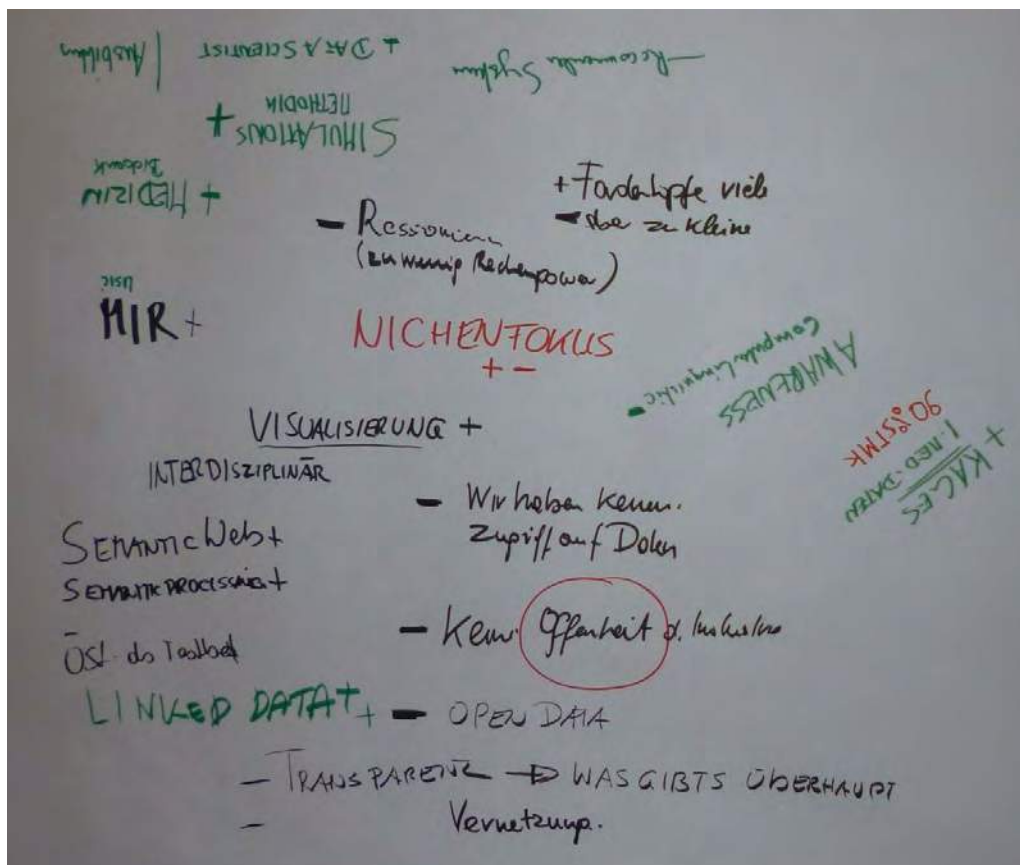 Ausbildung
+ DATA SCIENTIST
- Recommender System
SIMULATIONS +
METHODIK
+ MEDIZIN
+ Fördertöpfe viele
- aber zu kleine
- Ressourcen
(zu wenig Rechenpower)
usic
MIR +
NICHENFOKUS
+ -
AWARENESS
- Computerlinguistic
+ KAGES
1. MED. DATEN
90% STMK
VISUALISIERUNG +
INTERDISZIPLINÄR
- Wir haben keinen
Zugriff auf Daten
SEMANTIC Web +
SEMANTIC PROCESSING +
- Keine Offenheit d. Industrie
Öst. als Testbed
LINKED DATA + + - OPEN DATA
- TRANSPARENZ → WAS GIBTS ÜBERHAUPT
- Vernetzung.